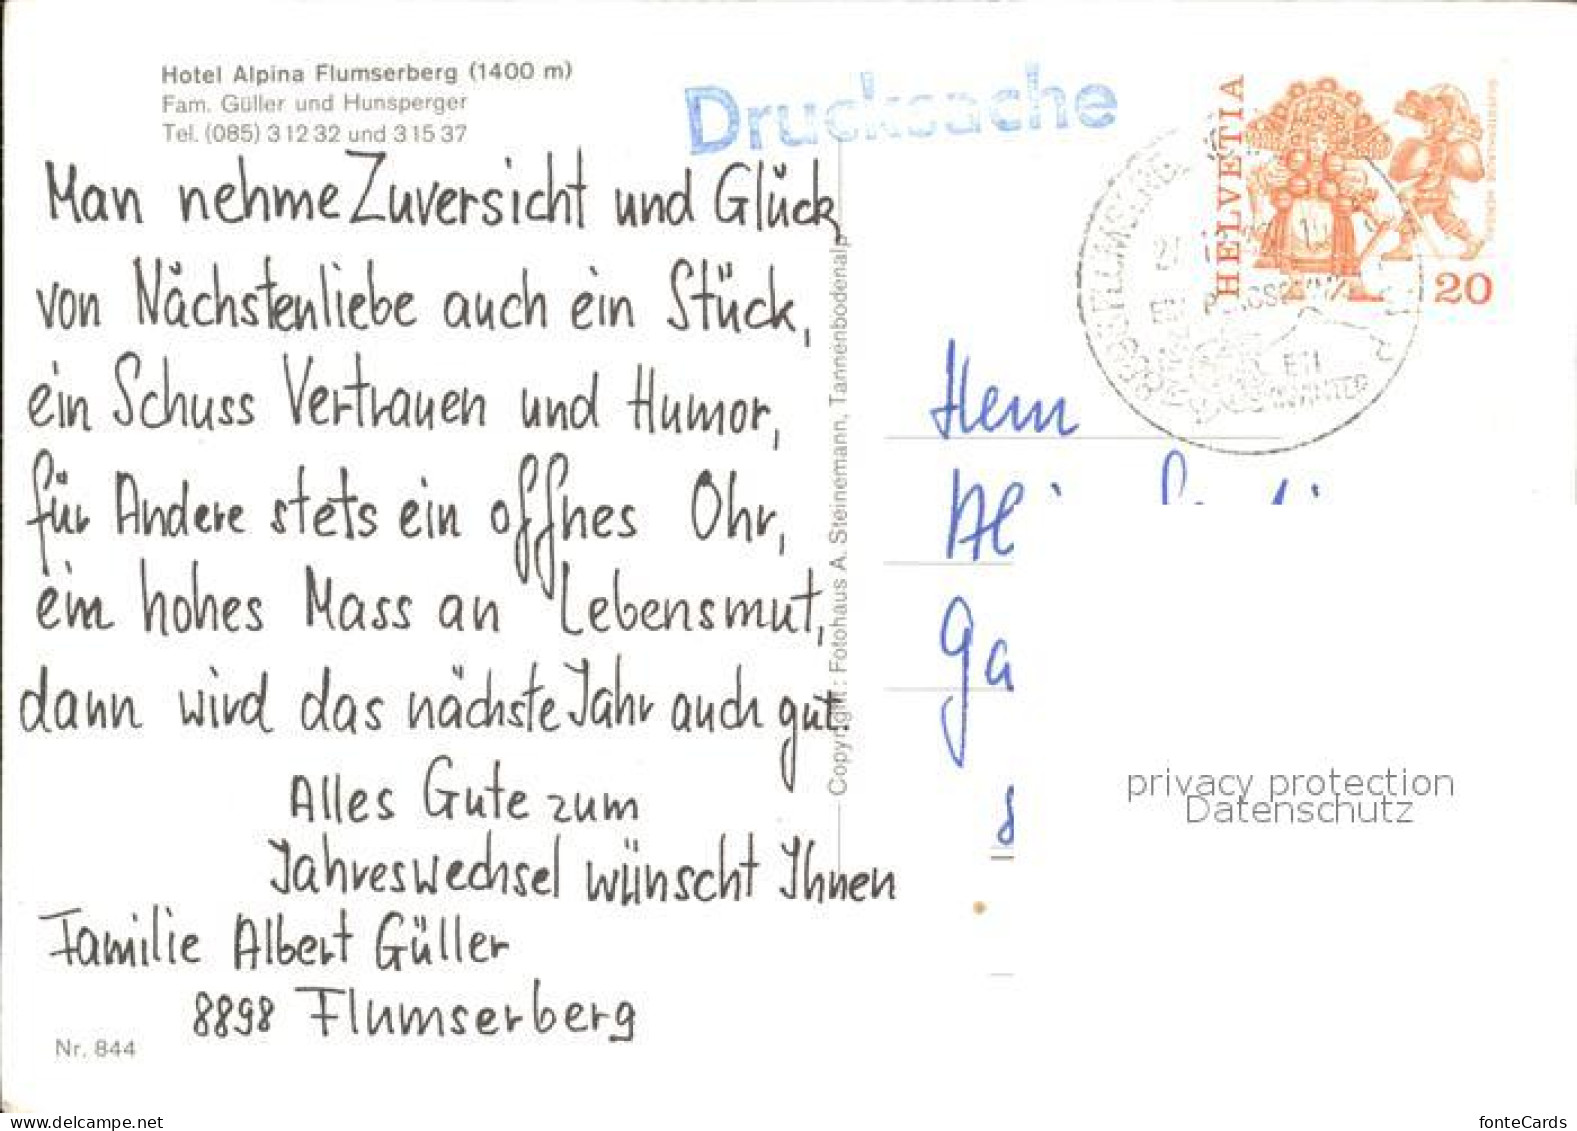 Hotel Alpina Flumserberg (1400 m)
Fam. Güller und Hunsperger
Tel. (085) 3 12 32 und 3 15 37
Man nehme Zuversicht und Glück
von Nächstenliebe auch ein Stück,
ein Schuss Vertrauen und Humor,
für Andere stets ein offnes Ohr,
ein hohes Mass an Lebensmut,
dann wird das nächste Jahr auch gut.
Alles Gute zum
Jahreswechsel wünscht Ihnen
Familie Albert Güller
8898 Flumserberg
Nr. 844
Copyright: Fotohaus A. Steinemann, Tannenbodenalp
Drucksache
HELVETIA
20
Herrn
privacy protection
Datenschutz
www.delcampe.net
fonteCards